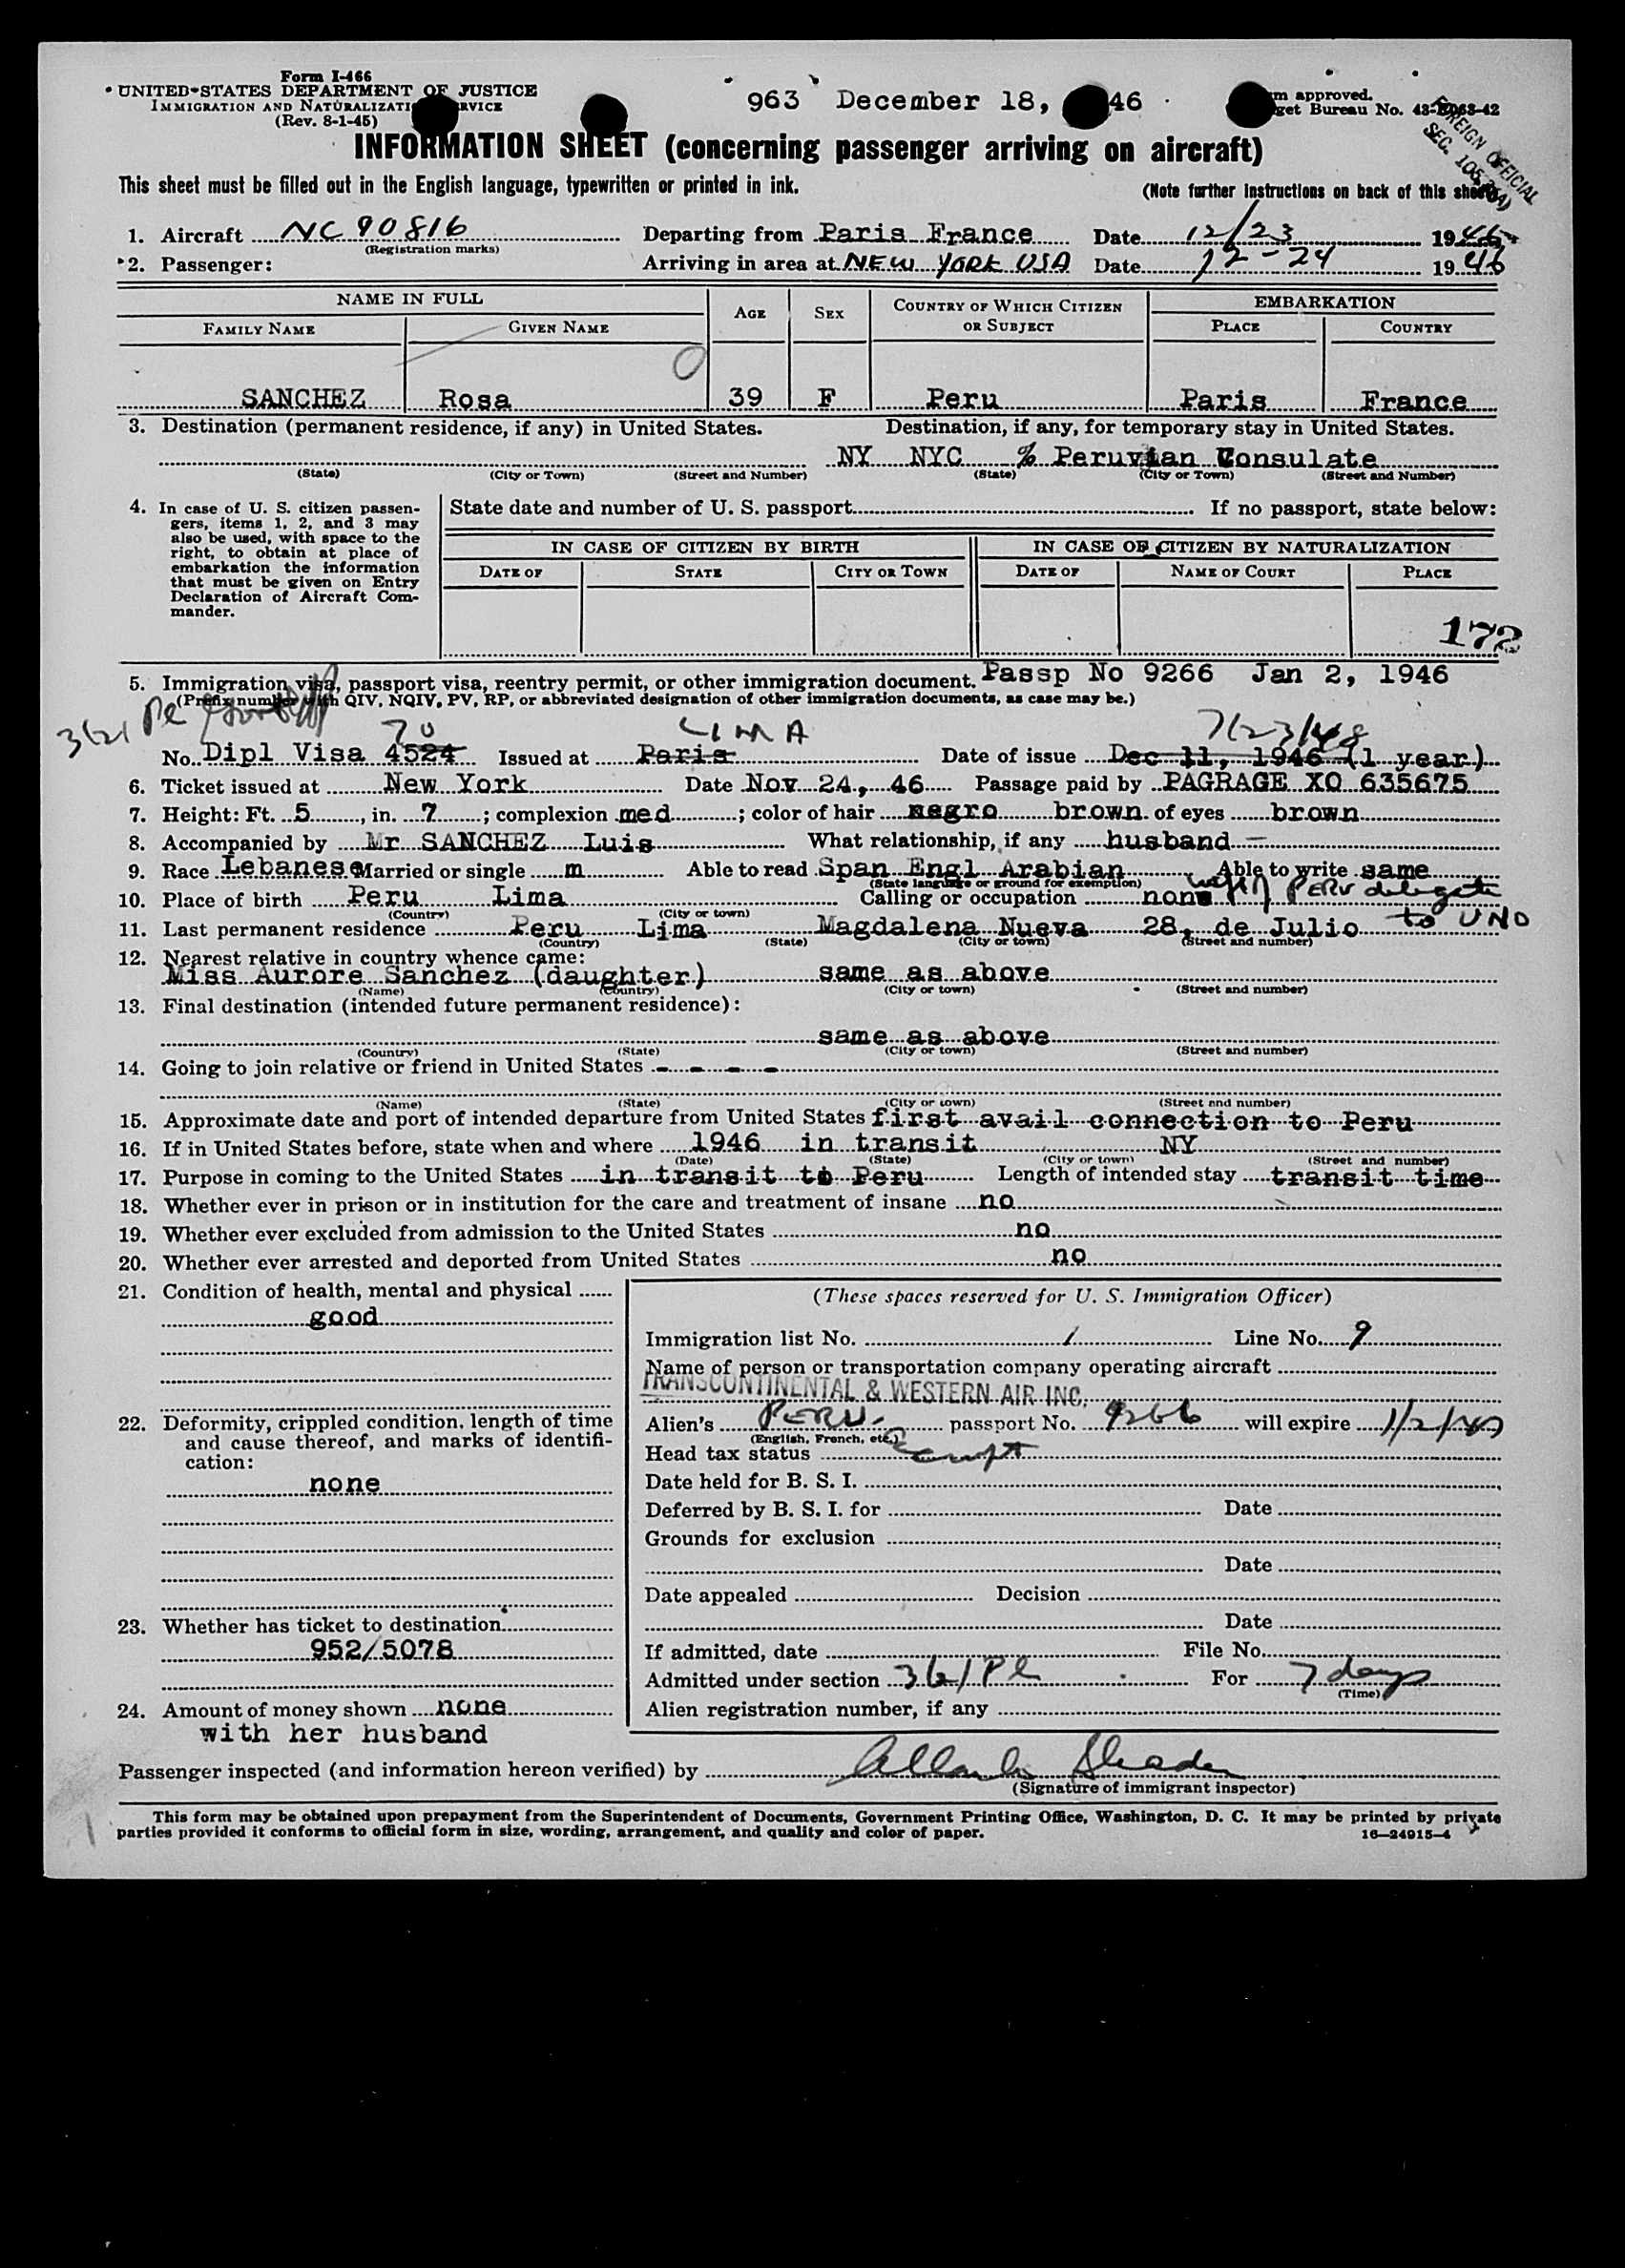 Form I-466
UNITED STATES DEPARTMENT OF JUSTICE
IMMIGRATION AND NATURALIZATI RVICE
(Rev. 8-1-45)
963 December 18, 46
m approved.
get Bureau No. 43-R063-42
FOREIGN OFFICIAL
SEC.
INFORMATION SHEET (concerning passenger arriving on aircraft)
This sheet must be filled out in the English language, typewritten or printed in ink.
(Note further instructions on back of this sheet)
1. Aircraft NC 90816 Departing from Paris France Date 12/23 1946
(Registration marks)
2. Passenger: Arriving in area at NEW YORK USA Date 12-24 1946
NAME IN FULL AGE SEX COUNTRY OF WHICH CITIZEN OR SUBJECT EMBARKATION
FAMILY NAME GIVEN NAME PLACE COUNTRY
SANCHEZ Rosa 39 F Peru Paris France
3. Destination (permanent residence, if any) in United States. Destination, if any, for temporary stay in United States.
NY NYC % Peruvian Consulate
(State) (City or Town) (Street and Number) (State) (City or Town) (Street and Number)
4. In case of U. S. citizen passen-
gers, items 1, 2, and 3 may
also be used, with space to the
right, to obtain at place of
embarkation the information
that must be given on Entry
Declaration of Aircraft Com-
mander.
State date and number of U. S. passport If no passport, state below:
IN CASE OF CITIZEN BY BIRTH IN CASE OF CITIZEN BY NATURALIZATION
DATE OF STATE CITY OR TOWN DATE OF NAME OF COURT PLACE
172
5. Immigration visa, passport visa, reentry permit, or other immigration document. Passp No 9266 Jan 2, 1946
(Prefix number with QIV, NQIV, PV, RP, or abbreviated designation of other immigration documents, as case may be.)
70 LIMA 7/23/46
No. Dipl Visa 4524 Issued at Paris Date of issue Dec 11, 1946 (1 year)
6. Ticket issued at New York Date Nov 24, 46 Passage paid by PAGRAGE XO 635675
7. Height: Ft. 5, in. 7; complexion med; color of hair negro brown of eyes brown
8. Accompanied by Mr SANCHEZ Luis What relationship, if any husband
9. Race Lebanese Married or single m Able to read Span Engl Arabian Able to write same
(State language or ground for exemption)
10. Place of birth Peru Lima Calling or occupation none wife of PERU delegate
(Country) (City or town)
to UNO
11. Last permanent residence Peru Lima Magdalena Nueva 28, de Julio
(Country) (State) (City or town) (Street and number)
12. Nearest relative in country whence came:
Miss Aurore Sanchez (daughter) same as above
(Name) (Country) (City or town) (Street and number)
13. Final destination (intended future permanent residence):
same as above
(Country) (State) (City or town) (Street and number)
14. Going to join relative or friend in United States - - - -
(Name) (State) (City or town) (Street and number)
15. Approximate date and port of intended departure from United States first avail connection to Peru
16. If in United States before, state when and where 1946 in transit NY
(Date) (State) (City or town) (Street and number)
17. Purpose in coming to the United States in transit to Peru Length of intended stay transit time
18. Whether ever in prison or in institution for the care and treatment of insane no
19. Whether ever excluded from admission to the United States no
20. Whether ever arrested and deported from United States no
21. Condition of health, mental and physical
good
22. Deformity, crippled condition, length of time
and cause thereof, and marks of identifi-
cation:
none
23. Whether has ticket to destination
952/5078
24. Amount of money shown none
with her husband
(These spaces reserved for U. S. Immigration Officer)
Immigration list No. 1 Line No. 9
Name of person or transportation company operating aircraft
TRANSCONTINENTAL & WESTERN AIR INC.
Alien's PERU. passport No. 9266 will expire 1/2/49
(English, French, etc.)
Head tax status Exempt
Date held for B. S. I.
Deferred by B. S. I. for Date
Grounds for exclusion
Date
Date appealed Decision
Date
If admitted, date File No.
Admitted under section 3(6)/Pl For 7 days
(Time)
Alien registration number, if any
Passenger inspected (and information hereon verified) by
(Signature of immigrant inspector)
This form may be obtained upon prepayment from the Superintendent of Documents, Government Printing Office, Washington, D. C. It may be printed by private
parties provided it conforms to official form in size, wording, arrangement, and quality and color of paper.
16—24915-4